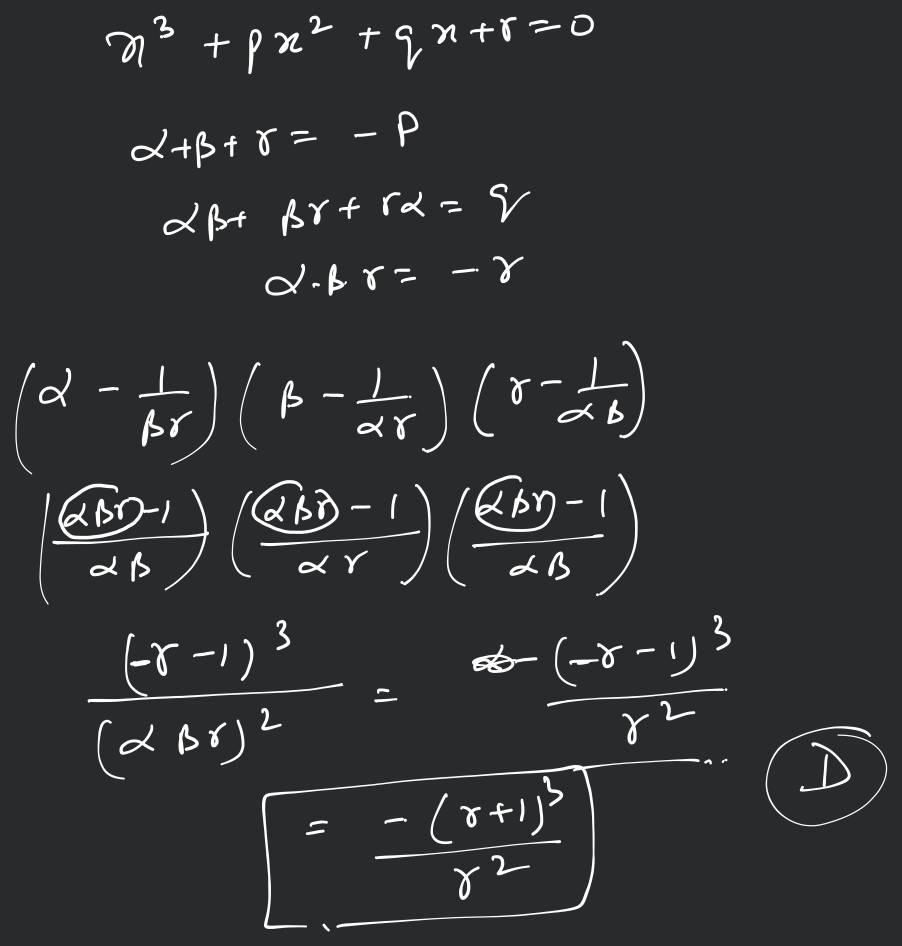 x³ + px² + qx + r = 0
α + β + γ = - P
αβ + βγ + γα = q
α·β γ = - r
(α - 1/βγ) (β - 1/αγ) (γ - 1/αβ)
(αβγ - 1 / αβ) (αβγ - 1 / αγ) (αβγ - 1 / αβ)
(-r - 1)³ / (αβγ)² = (-r - 1)³ / r²
= - (r + 1)³ / r²
D